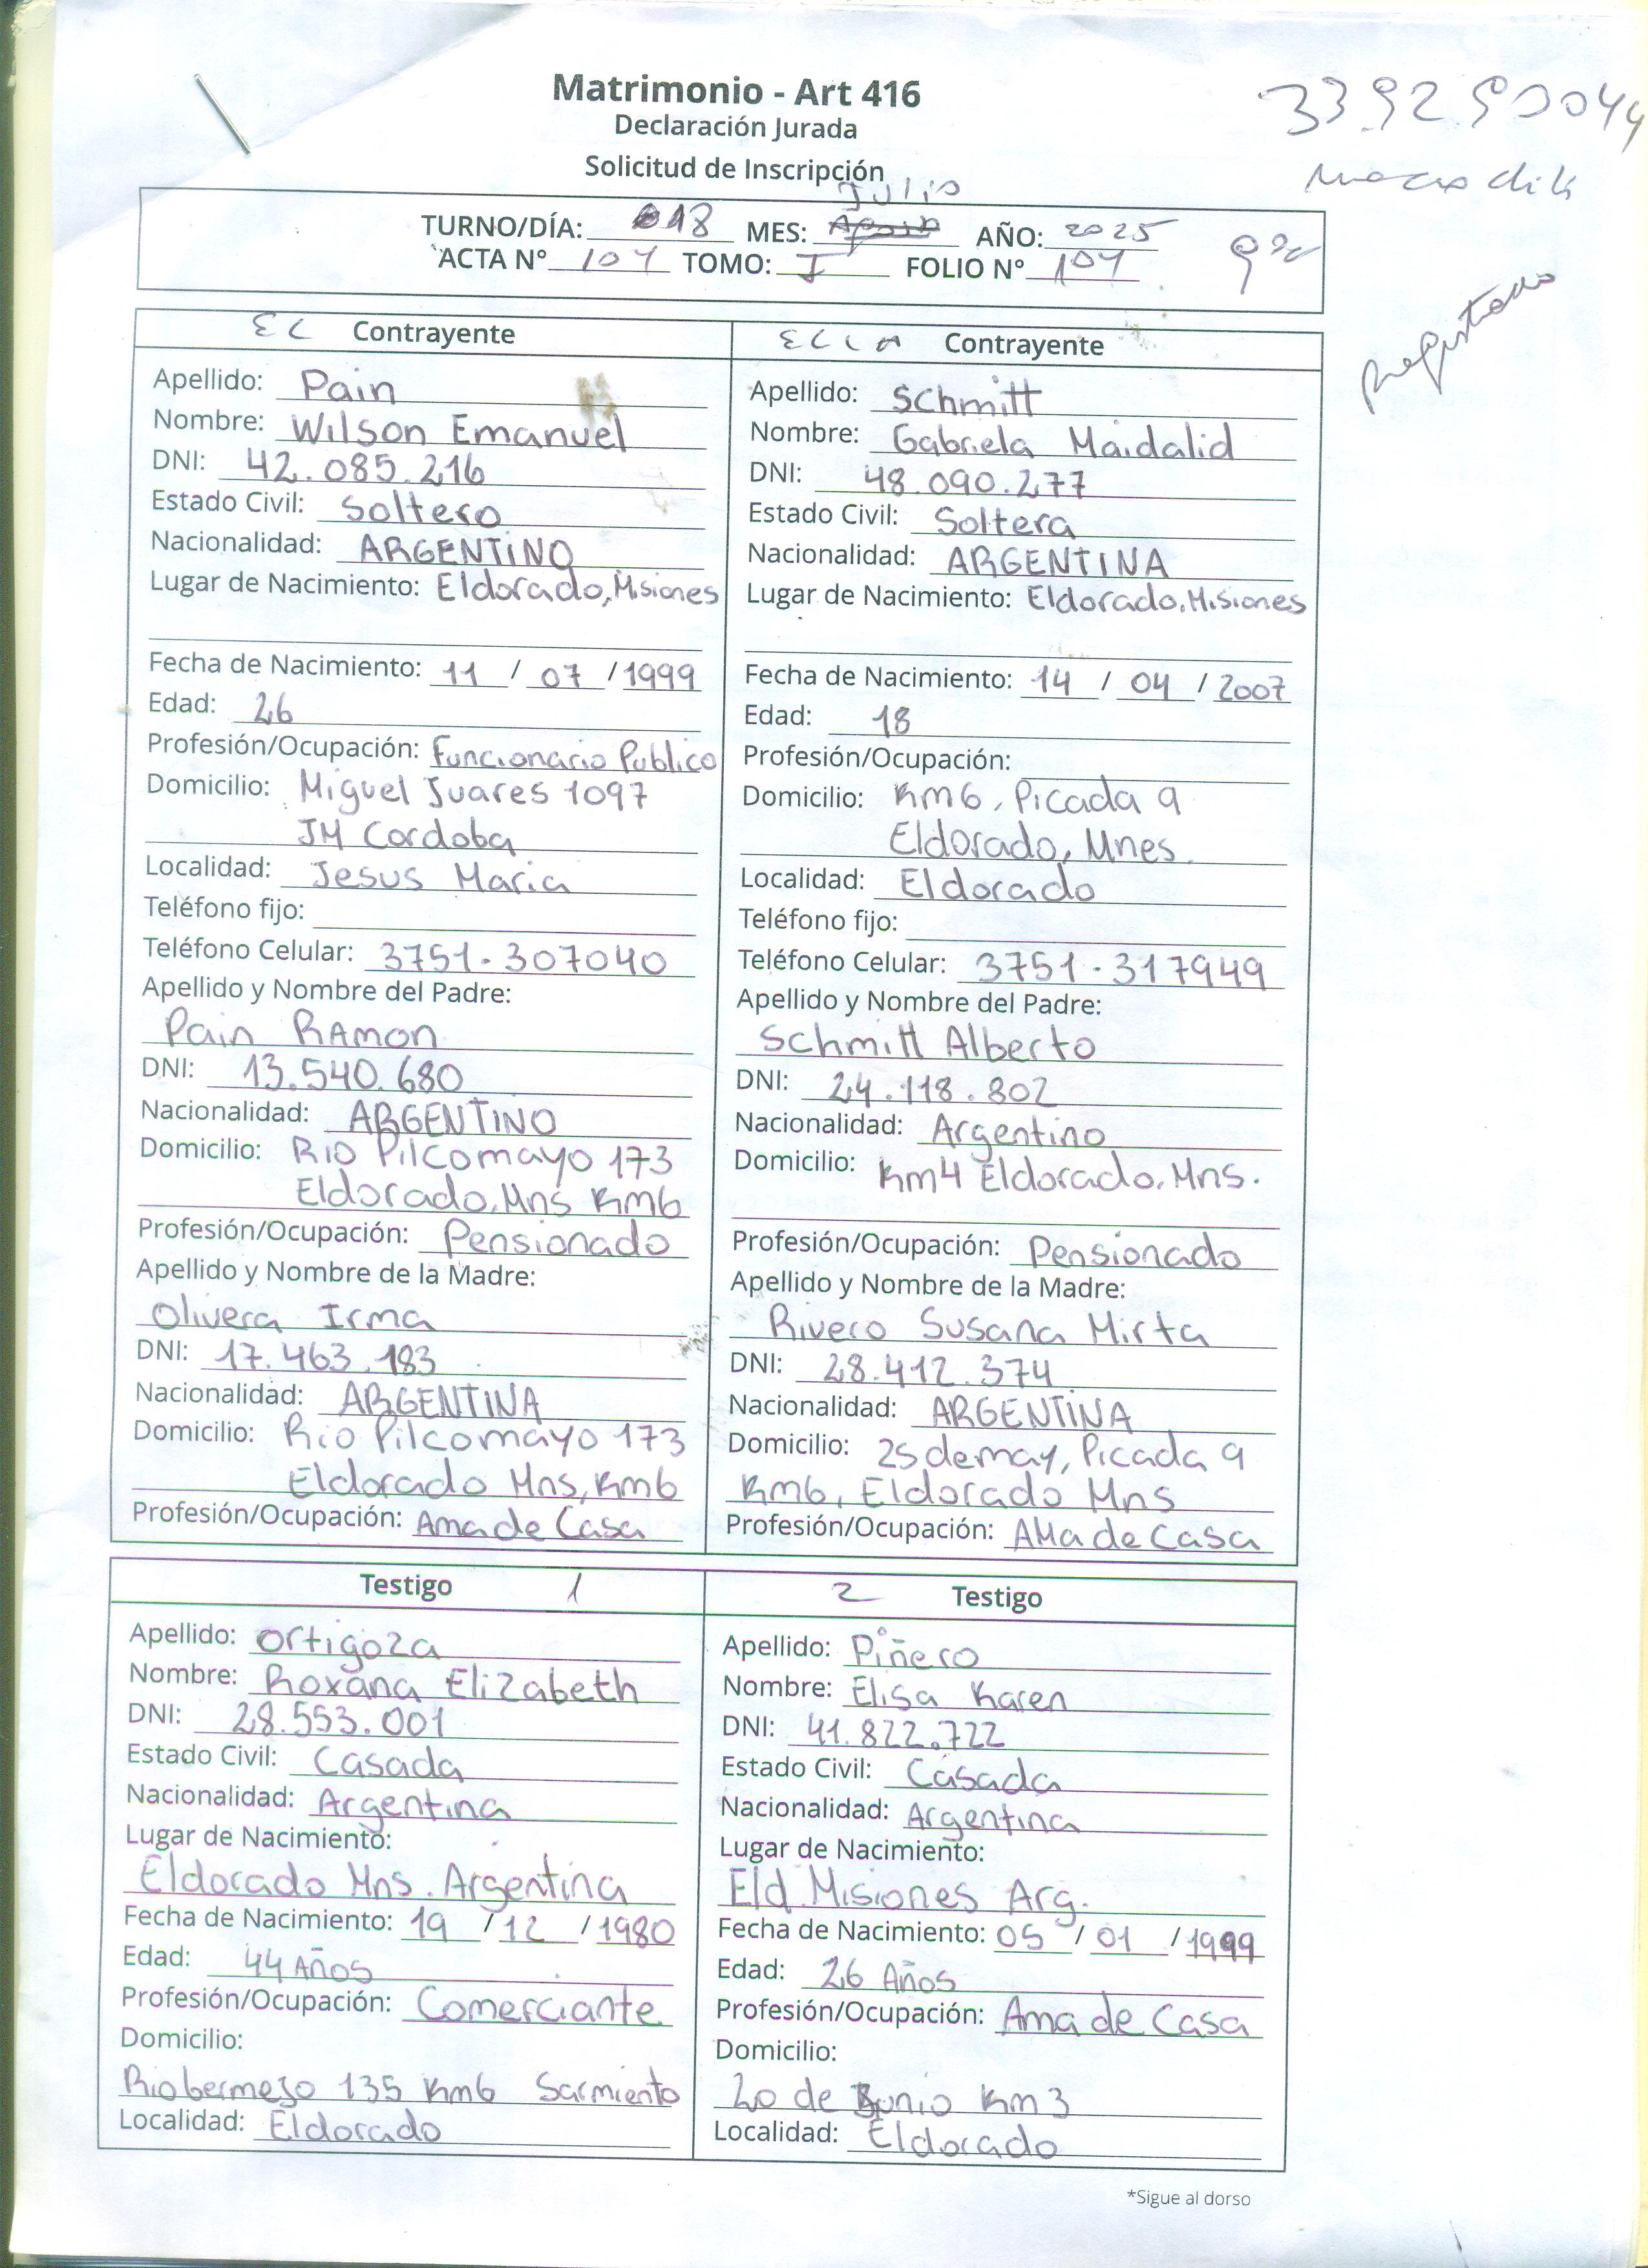 Matrimonio - Art 416
Declaración Jurada
Solicitud de Inscripción
Julio
TURNO/DÍA: 18 MES: AÑO: 2025
ACTA N° 107 TOMO: I FOLIO N° 107
Registrado
EL Contrayente
Apellido: Pain
Nombre: Wilson Emanuel
DNI: 42.085.216
Estado Civil: Soltero
Nacionalidad: ARGENTINO
Lugar de Nacimiento: Eldorado, Misiones
Fecha de Nacimiento: 11 / 07 / 1999
Edad: 26
Profesión/Ocupación: Funcionario Publico
Domicilio: Miguel Juares 1097
JM Cordoba
Localidad: Jesus Maria
Teléfono fijo:
Teléfono Celular: 3751-307040
Apellido y Nombre del Padre:
Pain RAmon
DNI: 13.540.680
Nacionalidad: ARGENTINO
Domicilio: Rio Pilcomayo 173
Eldorado, Mns Km6
Profesión/Ocupación: Pensionado
Apellido y Nombre de la Madre:
Olivera Irma
DNI: 17.463.183
Nacionalidad: ARGENTINA
Domicilio: Rio Pilcomayo 173
Eldorado Mns, Km6
Profesión/Ocupación: Ama de Casa
ELLA Contrayente
Apellido: Schmitt
Nombre: Gabriela Maidalid
DNI: 48.090.277
Estado Civil: Soltera
Nacionalidad: ARGENTINA
Lugar de Nacimiento: Eldorado, Misiones
Fecha de Nacimiento: 14 / 04 / 2007
Edad: 18
Profesión/Ocupación:
Domicilio: Km6, Picada 9
Eldorado, Mnes.
Localidad: Eldorado
Teléfono fijo:
Teléfono Celular: 3751-317949
Apellido y Nombre del Padre:
Schmitt Alberto
DNI: 24.118.802
Nacionalidad: Argentino
Domicilio: Km4 Eldorado, Mns.
Profesión/Ocupación: Pensionado
Apellido y Nombre de la Madre:
Rivero Susana Mirta
DNI: 28.412.374
Nacionalidad: ARGENTINA
Domicilio: 25 de may, Picada 9
Km6, Eldorado Mns
Profesión/Ocupación: AMa de Casa
Testigo 1
Apellido: Ortigoza
Nombre: Roxana Elizabeth
DNI: 28.553.001
Estado Civil: Casada
Nacionalidad: Argentina
Lugar de Nacimiento:
Eldorado Mns. Argentina
Fecha de Nacimiento: 19 / 12 / 1980
Edad: 44 Años
Profesión/Ocupación: Comerciante
Domicilio:
Rio bermejo 135 Km6 Sarmiento
Localidad: Eldorado
2 Testigo
Apellido: Piñero
Nombre: Elisa Karen
DNI: 41.822.722
Estado Civil: Casada
Nacionalidad: Argentina
Lugar de Nacimiento:
Eld. Misiones Arg.
Fecha de Nacimiento: 05 / 01 / 1999
Edad: 26 Años
Profesión/Ocupación: Ama de Casa
Domicilio:
20 de Junio Km 3
Localidad: Eldorado
*Sigue al dorso